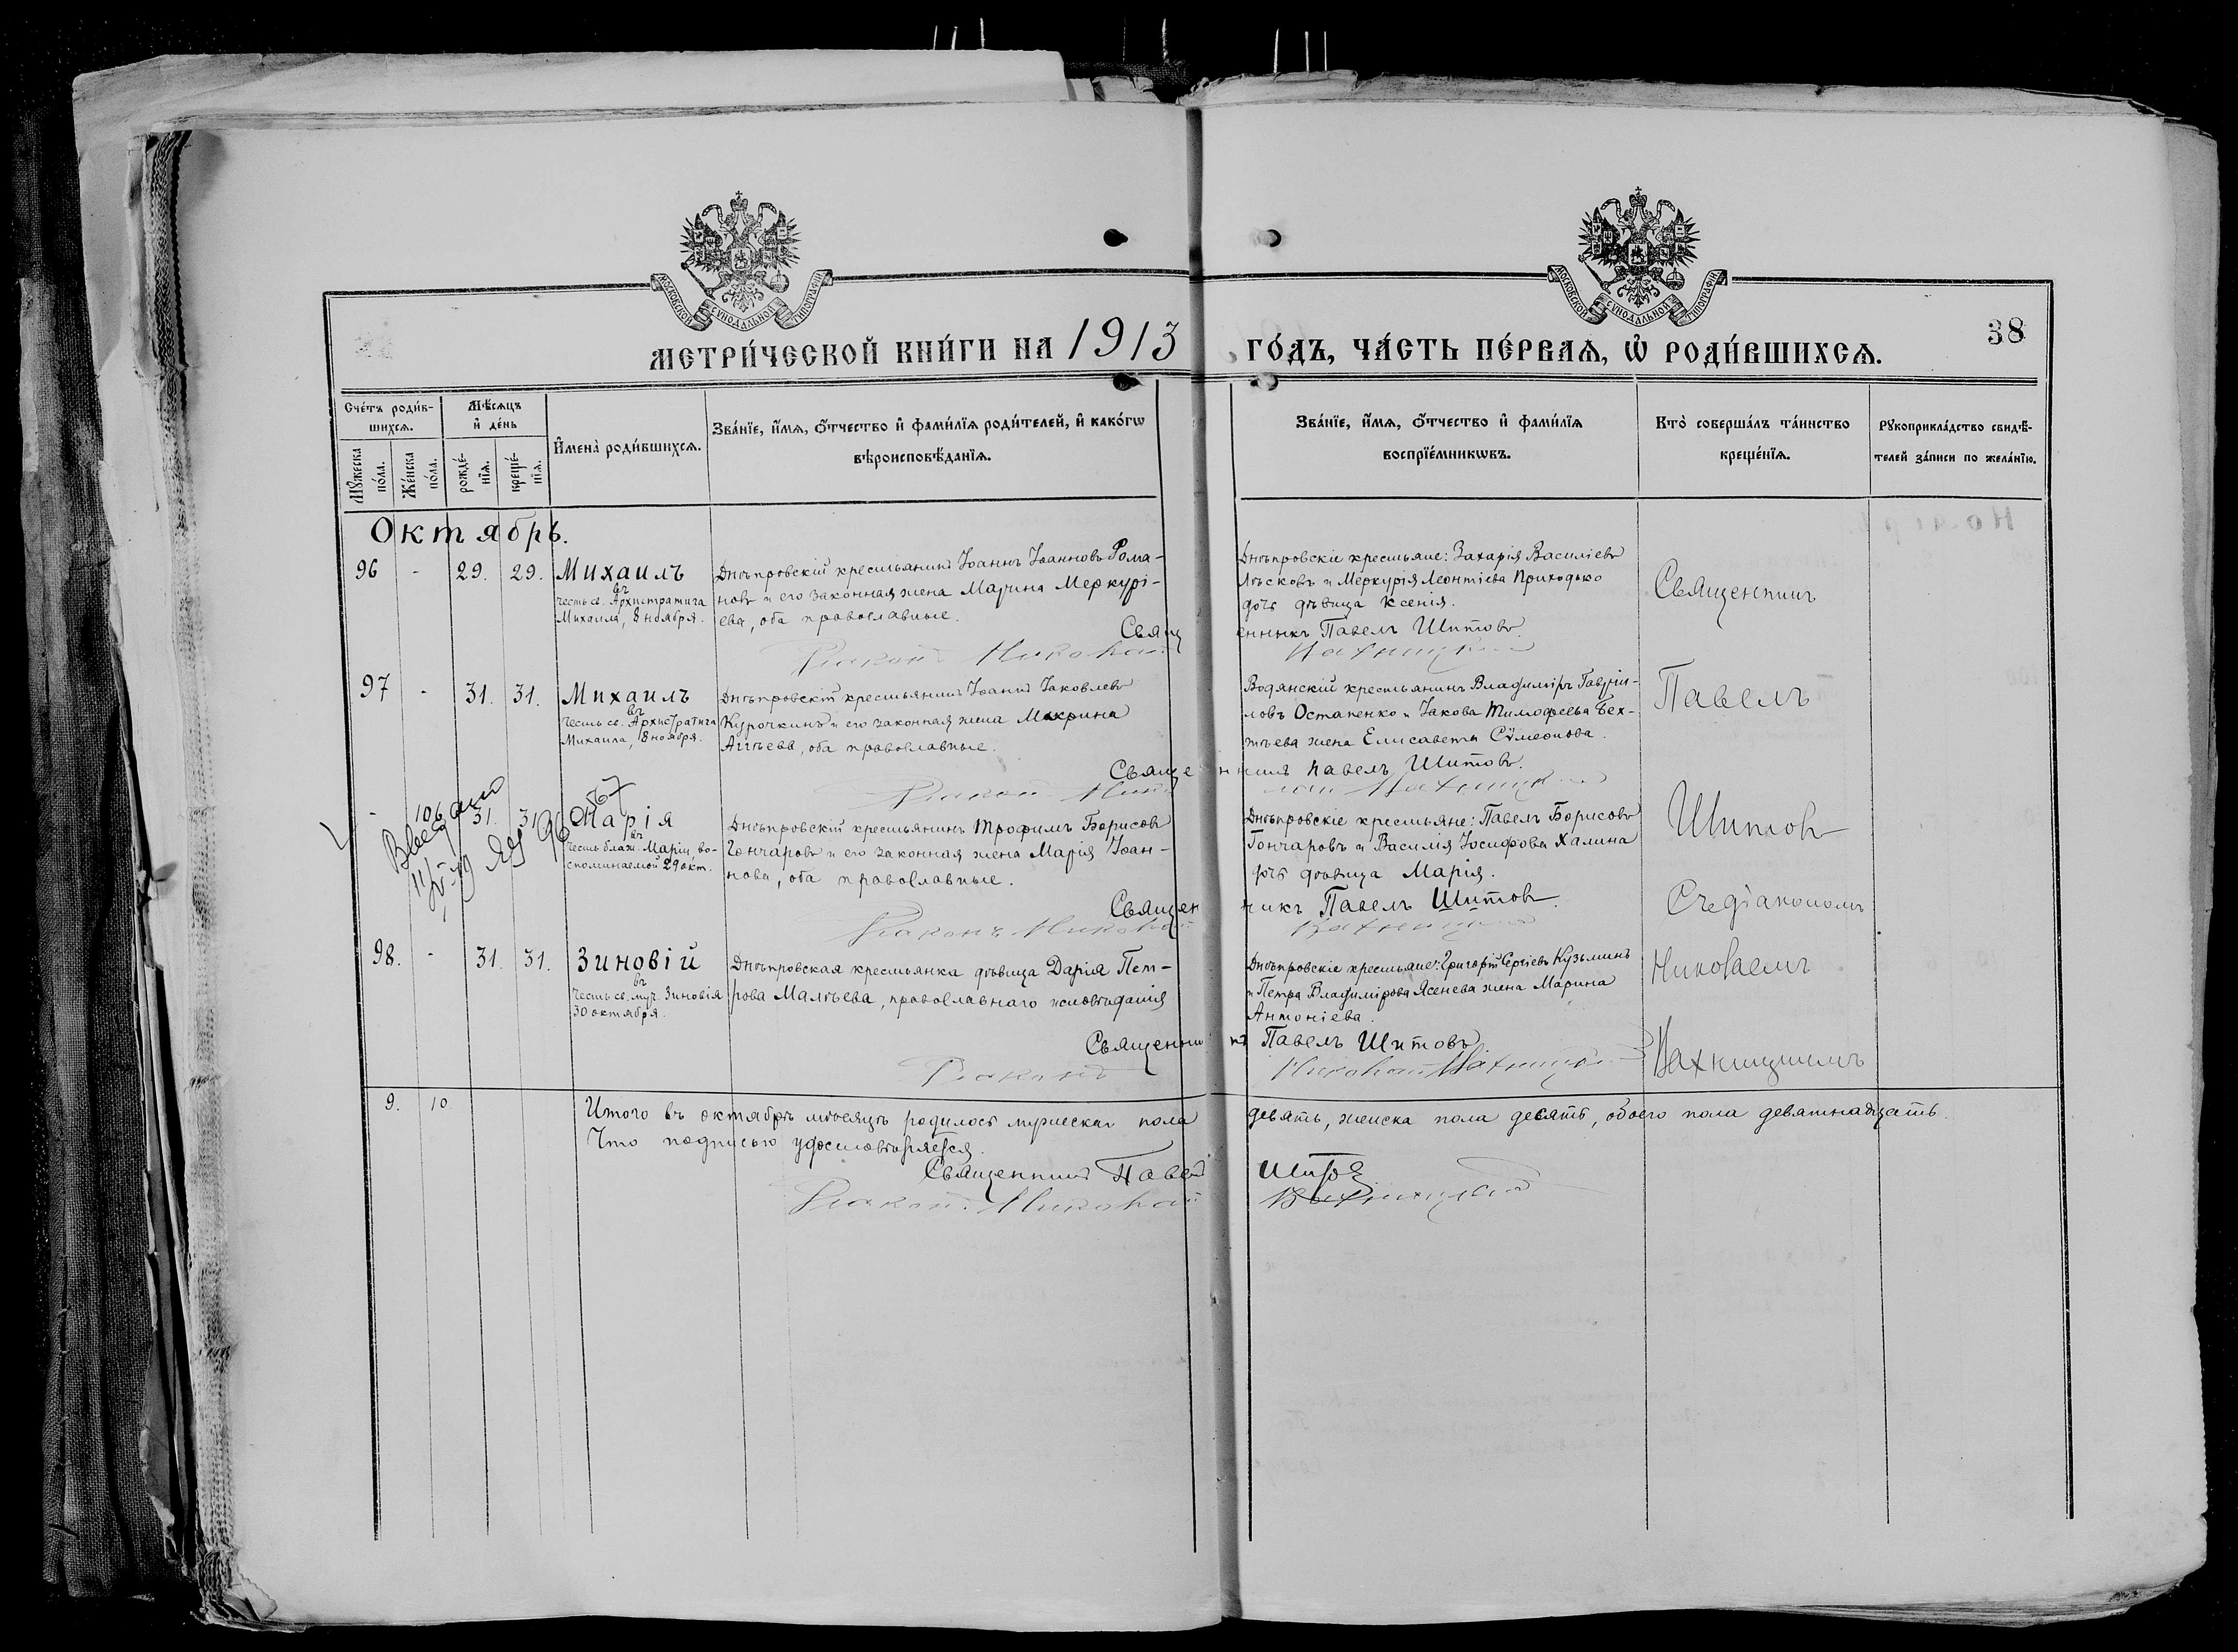 МОСКОВСКОЙ СѴНОДАЛЬНОЙ ТИПОГРАФІИ
МОСКОВСКОЙ СѴНОДАЛЬНОЙ ТИПОГРАФІИ
МЕТРИ́ЧЕСКОЙ КНИ́ГИ НА 1913 ГО́ДЪ, ЧА́СТЬ ПЕ́РВАѦ, Ѡ҆ РОДИ́ВШИХСѦ.
38
Сче́тъ роди́в-
шихсѧ.
Мꙋ́жеска по́ла.
Же́нска по́ла.
Мѣ́сѧцъ
и҆ де́нь
рожде́-
нїѧ.
креще́-
нїѧ.
И҆мена̀ роди́вшихсѧ.
Зва́нїе, и҆́мѧ, ѻ҆́тчество и҆ фами́лїѧ роди́телей, и҆ како́гѡ
вѣроисповѣ́данїѧ.
Зва́нїе, и҆́мѧ, ѻ҆́тчество и҆ фами́лїѧ
воспрїе́мникѡвъ.
Кто̀ соверша́лъ та́инство
креще́нїѧ.
Рꙋкоприкла́дство свидѣ́-
телей за́писи по жела́нїю.
Октябрь.
96 - 29. 29. Михаилъ
въ
честь св. Архистратига
Михаила, 8 ноября.
Днѣпровскій крестьянинъ Іоаннъ Іоанновъ Рома-
новъ и его законная жена Марина Меркурі-
ева, оба православные.
Днѣпровскіе крестьяне: Захарія Василіевъ
Лѣсковъ и Меркурія Леонтіева Приходько
дочь дѣвица Ксенія.
Священникъ Павелъ Шитовъ.
Діаконъ Николай
97 - 31. 31. Михаилъ
въ
честь св. Архистратига
Михаила, 8 ноября.
Днѣпровскій крестьянинъ Іоаннъ Іаковлевъ
Курочкинъ и его законная жена Макрина
Аггѣева, оба православные.
Водянскій крестьянинъ Владиміръ Гаврии-
ловъ Остапенко и Іакова Тимофеева Бех-
тѣева жена Елисавета Сѵмеонова.
Священникъ Павелъ Шитовъ.
- 106 31. 31. Марія
въ
честь блаж. Маріи, во-
споминаемой 29 окт.
Днѣпровскій крестьянинъ Трофимъ Борисовъ
Гончаровъ и его законная жена Марія Іоан-
нова, оба православные.
Днѣпровскіе крестьяне: Павелъ Борисовъ
Гончаровъ и Василія Іосифова Халина
дочь дѣвица Марія.
Священникъ Павелъ Шитовъ.
Діаконъ Николай
98. - 31. 31. Зиновій
въ
честь св. муч. Зиновія
30 октября.
Днѣпровская крестьянка дѣвица Дарія Пет-
рова Малѣева, православнаго исповѣданія
Днѣпровскіе крестьяне: Григорій Сергіевъ Кузьминъ
и Петра Владимірова Ясенева жена Марина
Антоніева.
Священникъ Павелъ Шитовъ
Діаконъ Николай
Священникъ
Павелъ
Шитовъ
Съ діакономъ
Николаемъ
9. 10 Итого въ октябрѣ мѣсяцѣ родилось мужеска пола девять, женска пола десять, обоего пола девятнадцать.
Что подписью удостовѣряется.
Священникъ Павелъ Шитовъ
Діаконъ Николай